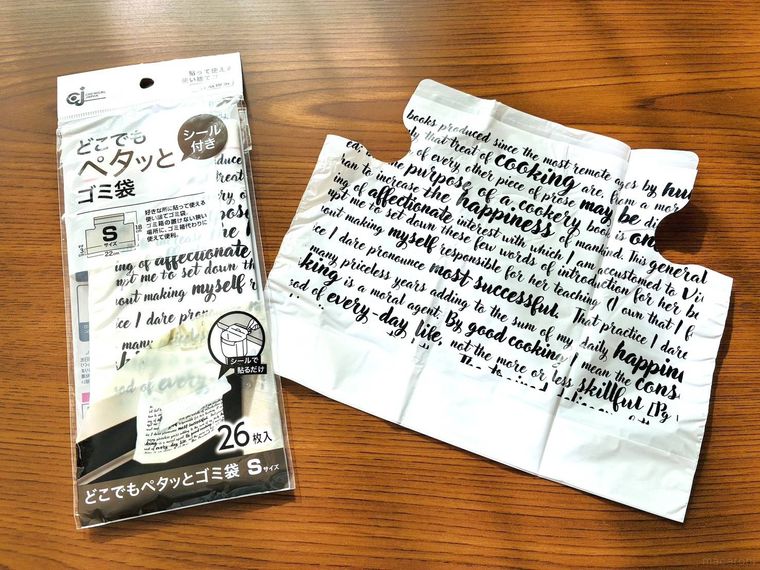 CHEMICAL JAPAN
貼って使える
使い捨てゴ
どこでも
ペタッと
ゴミ袋
シール
付き
好きな所に貼って使える
使い捨てゴミ袋。
ゴミ箱の置けない狭い
場所に、ゴミ箱代わりに
使えて便利。
S
サイズ
22cm
duce
ing of affectionate
upt me to set down th
out making myself r
ice I dare pron
many
sod of every
シールで
貼るだけ
26枚入
どこでもペタッとゴミ袋 Sサイズ
books produced since the most remote ages by hum
ly that treat of cooking are, from a mor
of every other piece of prose may be di
the purpose of a cookery book is on
ran to increase the happiness of mankind. This general
ing of affectionate interest with which I am accustomed to Vi
upt me to set down these few words of introduction for her b
out making myself responsible for her teaching (I own that I f
ice I dare pronounce most successful. That practice I dare
many priceless years adding to the sum of my daily happin
king is a moral agent. By good cooking I mean the cons
sod of every-day life, not the more or less skillful
macaroni